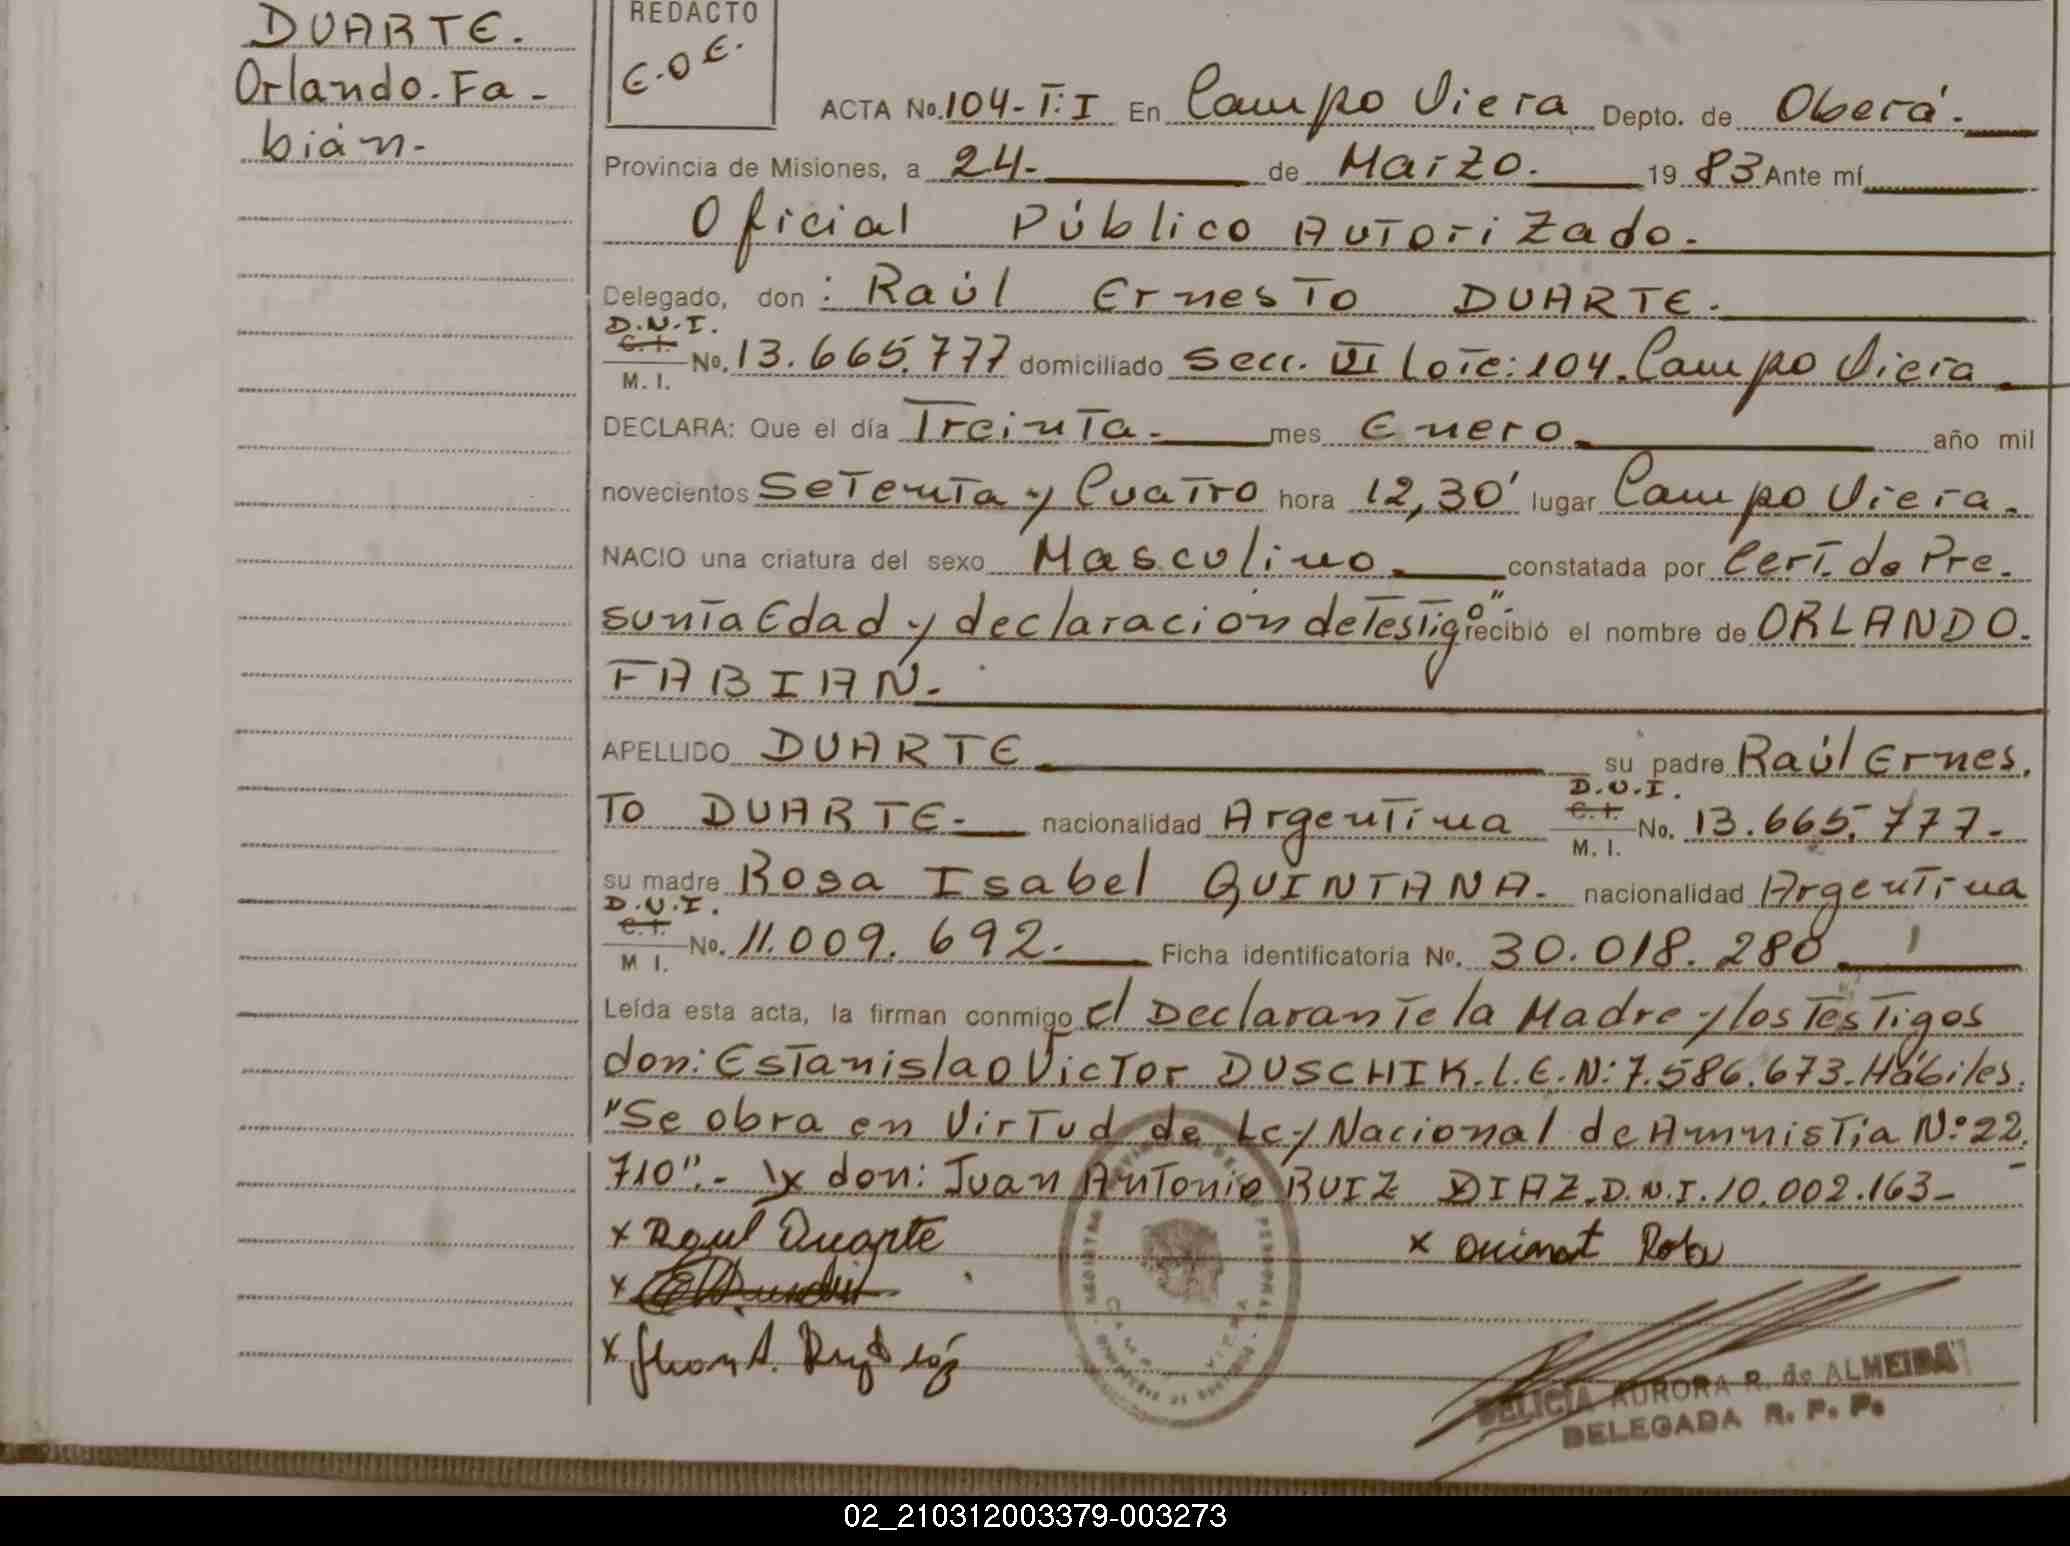 DUARTE.
Orlando. Fa-
bián.-
REDACTO
E.O.E.
ACTA No. 104-T:I En Campo Viera Depto. de Oberá.
Provincia de Misiones, a 24.- de Marzo. 19 83 Ante mí
Oficial Público Autorizado.
Delegado, don : Raúl Ernesto DUARTE.
D.N.I.
C.I.
M. I.
No. 13.665.777 domiciliado Secc. VI Lote: 104. Campo Viera
DECLARA: Que el día Treinta.- mes Enero. año mil
novecientos Setenta y Cuatro hora 12,30' lugar Campo Viera.
NACIO una criatura del sexo Masculino. constatada por Cert. de Pre.
sunta Edad y declaración de Testigo". recibió el nombre de ORLANDO.
FABIAN.-
APELLIDO DUARTE su padre Raúl Ernes.
D.N.I.
C.I.
M. I.
To DUARTE.- nacionalidad Argentina No. 13.665.777.-
su madre Rosa Isabel QUINTANA.- nacionalidad Argentina
D.N.I.
C.I.
M I.
No. 11.009.692.- Ficha identificatoria No. 30.018.280
Leída esta acta, la firman conmigo el Declarante la Madre y los Testigos
don: Estanislao Victor DUSCHIK. L.E.N: 7.586.673. Hábiles.
"Se obra en Virtud de Ley Nacional de Amnistia N:º 22.
710".- y don: Juan Antonio RUIZ DIAZ. D.N.I. 10.002.163-
x Raul Duarte
x
x
x
DELICIA AURORA R. de ALMEIDA
DELEGADA R. P. P.
02_210312003379-003273